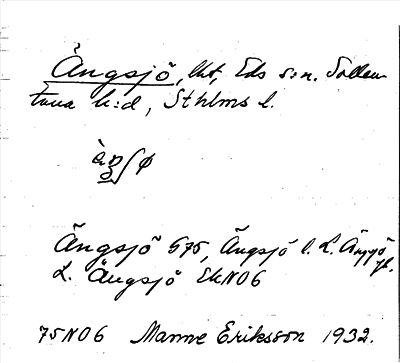 Ängsjö, lht, Eds s:n. Sollen-
tuna h:d, Sthlms l.
Ängsjö G75, Ängsjö l. L. Ängsjö
L. Ängsjö EkN06
75N06 Manne Eriksson 1932.